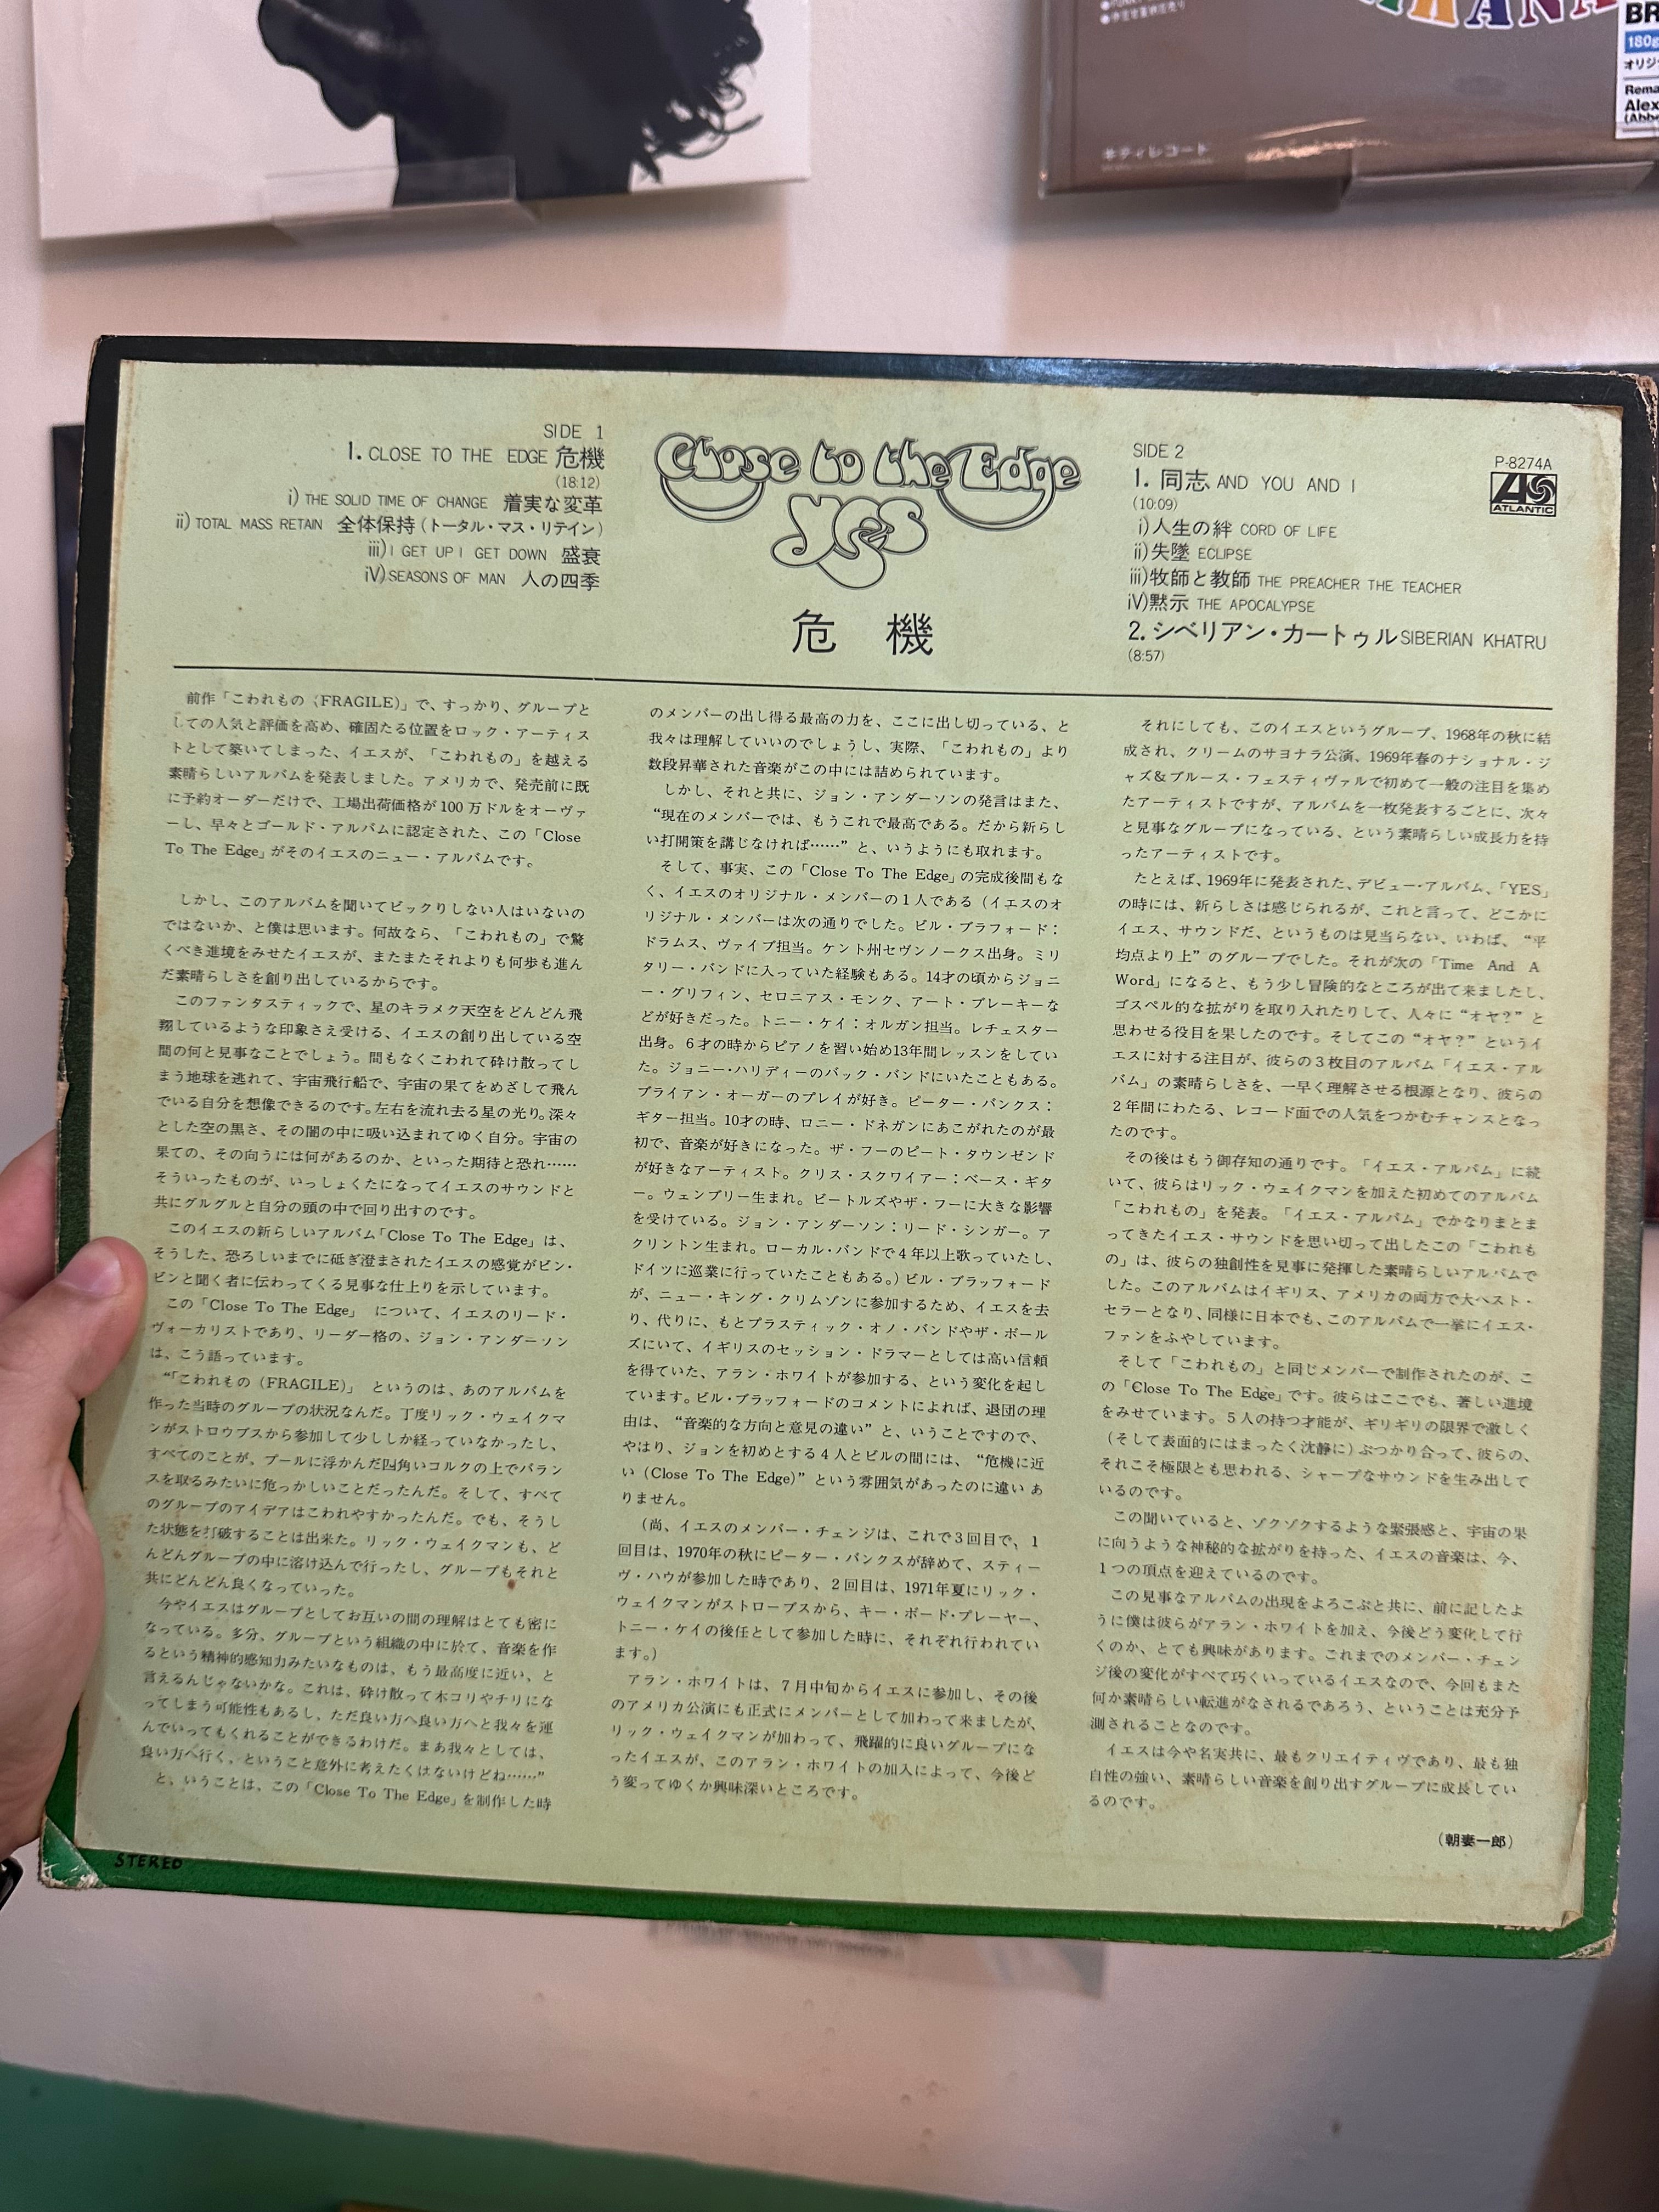 キティレコード
BR
180g
オリジ
Rema
Alex
(Abbe
SIDE 1
1. CLOSE TO THE EDGE 危機
(18:12)
i) THE SOLID TIME OF CHANGE 着実な変革
ii) TOTAL MASS RETAIN 全体保持(トータル・マス・リテイン)
iii) I GET UP I GET DOWN 盛衰
iV) SEASONS OF MAN 人の四季
Close to the Edge
Yes
危機
SIDE 2
1. 同志 AND YOU AND I
(10:09)
i)人生の絆 CORD OF LIFE
ii)失墜 ECLIPSE
iii)牧師と教師 THE PREACHER THE TEACHER
iV)黙示 THE APOCALYPSE
2. シベリアン・カートゥル SIBERIAN KHATRU
(8:57)
P-8274A
ATLANTIC
前作「こわれもの(FRAGILE)」で、すっかり、グループと
しての人気と評価を高め、確固たる位置をロック・アーティス
トとして築いてしまった、イエスが、「こわれもの」を越える
素晴らしいアルバムを発表しました。アメリカで、発売前に既
に予約オーダーだけで、工場出荷価格が100万ドルをオーヴァ
ーし、早々とゴールド・アルバムに認定された、この「Close
To The Edge」がそのイエスのニュー・アルバムです。
しかし、このアルバムを聞いてビックリしない人はいないの
ではないか、と僕は思います。何故なら、「こわれもの」で驚
くべき進境をみせたイエスが、またまたそれよりも何歩も進ん
だ素晴らしさを創り出しているからです。
このファンタスティックで、星のキラメク天空をどんどん飛
翔しているような印象さえ受ける、イエスの創り出している空
間の何と見事なことでしょう。間もなくこわれて砕け散ってし
まう地球を逃れて、宇宙飛行船で、宇宙の果てをめざして飛ん
でいる自分を想像できるのです。左右を流れ去る星の光り。深々
とした空の黒さ、その闇の中に吸い込まれてゆく自分。宇宙の
果ての、その向うには何があるのか、といった期待と恐れ……
そういったものが、いっしょくたになってイエスのサウンドと
共にグルグルと自分の頭の中で回り出すのです。
このイエスの新らしいアルバム「Close To The Edge」は、
そうした、恐ろしいまでに砥ぎ澄まされたイエスの感覚がビン・
ビンと聞く者に伝わってくる見事な仕上りを示しています。
この「Close To The Edge」 について、イエスのリード・
ヴォーカリストであり、リーダー格の、ジョン・アンダーソン
は、こう語っています。
“「こわれもの (FRAGILE)」 というのは、あのアルバムを
作った当時のグループの状況なんだ。丁度リック・ウェイクマ
ンがストロウブスから参加して少ししか経っていなかったし、
すべてのことが、プールに浮かんだ四角いコルクの上でバラン
スを取るみたいに危っかしいことだったんだ。そして、すべて
のグループのアイデアはこわれやすかったんだ。でも、そうし
た状態を打破することは出来た。リック・ウェイクマンも、ど
んどんグループの中に溶け込んで行ったし、グループもそれと
共にどんどん良くなっていった。
今やイエスはグループとしてお互いの間の理解はとても密に
なっている。多分、グループという組織の中に於て、音楽を作
るという精神的感知力みたいなものは、もう最高度に近い、と
言えるんじゃないかな。これは、砕け散って木コリやチリにな
ってしまう可能性もあるし、ただ良い方へ良い方へと我々を運
んでいってもくれることができるわけだ。まあ我々としては、
良い方へ行く、ということ意外に考えたくはないけどね……”
と、いうことは、この「Close To The Edge」を制作した時
のメンバーの出し得る最高の力を、ここに出し切っている、と
我々は理解していいのでしょうし、実際、「こわれもの」より
数段昇華された音楽がこの中には詰められています。
しかし、それと共に、ジョン・アンダーソンの発言はまた、
“現在のメンバーでは、もうこれで最高である。だから新らし
い打開策を講じなければ……”と、いうようにも取れます。
そして、事実、この「Close To The Edge」の完成後間もな
く、イエスのオリジナル・メンバーの1人である (イエスのオ
リジナル・メンバーは次の通りでした。ビル・ブラフォード:
ドラムス、ヴァイブ担当。ケント州セヴンノークス出身。ミリ
タリー・バンドに入っていた経験もある。14才の頃からジョニ
ー・グリフィン、セロニアス・モンク、アート・ブレーキーな
どが好きだった。トニー・ケイ:オルガン担当。レチェスター
出身。6才の時からピアノを習い始め13年間レッスンをしてい
た。ジョニー・ハリディーのバック・バンドにいたこともある。
ブライアン・オーガーのプレイが好き。ピーター・バンクス:
ギター担当。10才の時、ロニー・ドネガンにあこがれたのが最
初で、音楽が好きになった。ザ・フーのピート・タウンゼンド
が好きなアーティスト。クリス・スクワイアー:ベース・ギタ
ー。ウェンブリー生まれ。ビートルズやザ・フーに大きな影響
を受けている。ジョン・アンダーソン:リード・シンガー。ア
クリントン生まれ。ローカル・バンドで4年以上歌っていたし、
ドイツに巡業に行っていたこともある。)ビル・ブラッフォード
が、ニュー・キング・クリムゾンに参加するため、イエスを去
り、代りに、もとプラスティック・オノ・バンドやザ・ボール
ズにいて、イギリスのセッション・ドラマーとしては高い信頼
を得ていた、アラン・ホワイトが参加する、という変化を起し
ています。ビル・ブラッフォードのコメントによれば、退団の理
由は、“音楽的な方向と意見の違い”と、いうことですので、
やはり、ジョンを初めとする4人とビルの間には、“危機に近
い (Close To The Edge)”という雰囲気があったのに違い あ
りません。
(尚、イエスのメンバー・チェンジは、これで3回目で、1
回目は、1970年の秋にピーター・バンクスが辞めて、スティー
ヴ・ハウが参加した時であり、2回目は、1971年夏にリック・
ウェイクマンがストローブスから、キー・ボード・プレーヤー、
トニー・ケイの後任として参加した時に、それぞれ行われてい
ます。)
アラン・ホワイトは、7月中旬からイエスに参加し、その後
のアメリカ公演にも正式にメンバーとして加わって来ましたが、
リック・ウェイクマンが加わって、飛躍的に良いグループにな
ったイエスが、このアラン・ホワイトの加入によって、今後ど
う変ってゆくか興味深いところです。
それにしても、このイエスというグループ、1968年の秋に結
成され、クリームのサヨナラ公演、1969年春のナショナル・ジ
ャズ&ブルース・フェスティヴァルで初めて一般の注目を集め
たアーティストですが、アルバムを一枚発表するごとに、次々
と見事なグループになっている、という素晴らしい成長力を持
ったアーティストです。
たとえば、1969年に発表された、デビュー・アルバム、「YES」
の時には、新らしさは感じられるが、これと言って、どこかに
イエス、サウンドだ、というものは見当らない、いわば、“平
均点より上”のグループでした。それが次の「Time And A
Word」になると、もう少し冒険的なところが出て来ましたし、
ゴスペル的な拡がりを取り入れたりして、人々に“オヤ?”と
思わせる役目を果したのです。そしてこの“オヤ?”というイ
エスに対する注目が、彼らの3枚目のアルバム「イエス・アル
バム」の素晴らしさを、一早く理解させる根源となり、彼らの
2年間にわたる、レコード面での人気をつかむチャンスとなっ
たのです。
その後はもう御存知の通りです。「イエス・アルバム」に続
いて、彼らはリック・ウェイクマンを加えた初めてのアルバム
「こわれもの」を発表。「イエス・アルバム」でかなりまとま
ってきたイエス・サウンドを思い切って出したこの「こわれも
の」は、彼らの独創性を見事に発揮した素晴らしいアルバムで
した。このアルバムはイギリス、アメリカの両方で大ベスト・
セラーとなり、同様に日本でも、このアルバムで一挙にイエス・
ファンをふやしています。
そして「こわれもの」と同じメンバーで制作されたのが、こ
の「Close To The Edge」です。彼らはここでも、著しい進境
をみせています。5人の持つ才能が、ギリギリの限界で激しく
(そして表面的にはまったく沈静に)ぶつかり合って、彼らの、
それこそ極限とも思われる、シャープなサウンドを生み出して
いるのです。
この聞いていると、ゾクゾクするような緊張感と、宇宙の果
に向うような神秘的な拡がりを持った、イエスの音楽は、今、
1つの頂点を迎えているのです。
この見事なアルバムの出現をよろこぶと共に、前に記したよ
うに僕は彼らがアラン・ホワイトを加え、今後どう変化して行
くのか、とても興味があります。これまでのメンバー・チェン
ジ後の変化がすべて巧くいっているイエスなので、今回もまた
何か素晴らしい転進がなされるであろう、ということは充分予
測されることなのです。
イエスは今や名実共に、最もクリエイティヴであり、最も独
自性の強い、素晴らしい音楽を創り出すグループに成長してい
るのです。
(朝妻一郎)
STEREO